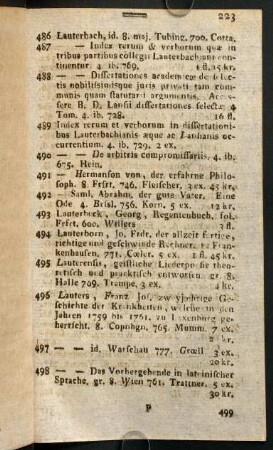 223
486 Lauterbach, id. 8. maj. Tubing. 700. Cotta.
487 — — Index rerum & verborum quæ in
tribus partibus collegii Lauterbachiani con-
tinentur 4 ib. 769. 1 fl. 15 kr.
488 — — Dissertationes academicæ de selectis
nobilissimisque juris privati tam com-
munis quam statutarii argumentis, Acces-
sere B. D. Lansii dissertationes selectæ 4
Tom. 4. ib. 728. 16 fl.
489 Index rerum et verborum in dissertationi-
bus Lauterbachianis æque ac Lansianis oc-
currentium. 4. ib. 729. 2 ex.
490 — — De arbitris compromissariis. 4. ib.
675. Hein.
491 — Hermanson von, der erfahrne Philo-
soph. 8 Frfrt. 746. Fleischer, 3 ex. 45 kr.
492 — Saml. Abrahm. der gute Vater. Eine
Ode 4. Brisl. 756. Korn. 5 ex. 12 kr.
493 Lauterbeck, Georg, Regentenbuch, fol.
Frfrt. 600. Willers 3 fl.
494 Lauterborn, Jo. Frdr. der allzeit fertige,
richtige und geschwinde Rechner. 12 Fran-
kenhausen. 771. Cœler. 5 ex. 1 fl. 45 kr.
495 Laurensis, geistliche Liederposie theo-
retisch und practisch entworfen gr. 8.
Halle 709. Trampe, 3 ex. 4 kr.
496 Lauters, Franz. Jos. zweyjährige Ge-
schichte der Krankheiten, welche in den
Jahren 1759 bis 1761. zu Luxenburg ge-
herrscht. 8. Copnhgn. 765. Mumm. 7 ex.
2 kr.
497 — — id. Warschau 777. Groell 3 ex.
20 kr.
498 — — Das Vorhergehende in lateinischer
Sprache, gr. 8. Wien 761. Trattner. 5 ex.
30 kr.
P 499